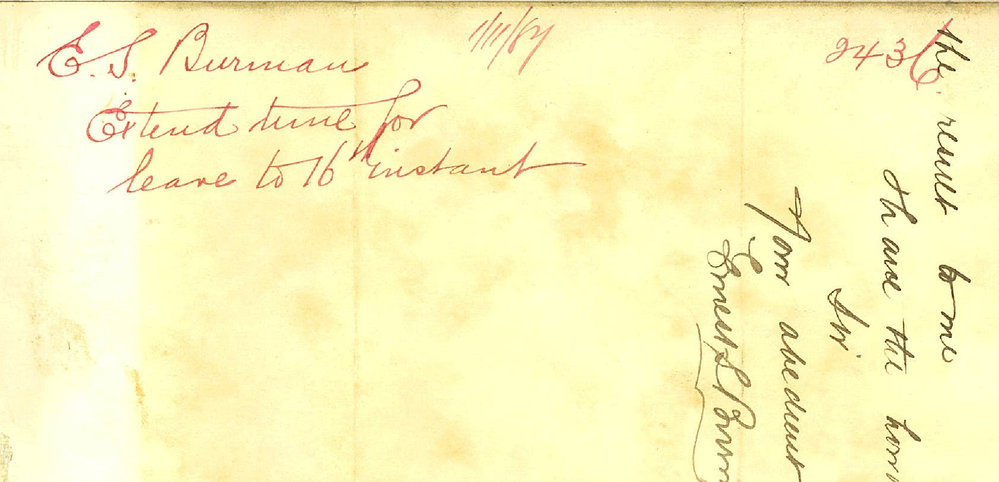 E. S. Burman
1/11/87
2436
Extend time for
leave to 16th instant
the result to me
I have the hon
Sir
Your obedient
Ernest S Burm